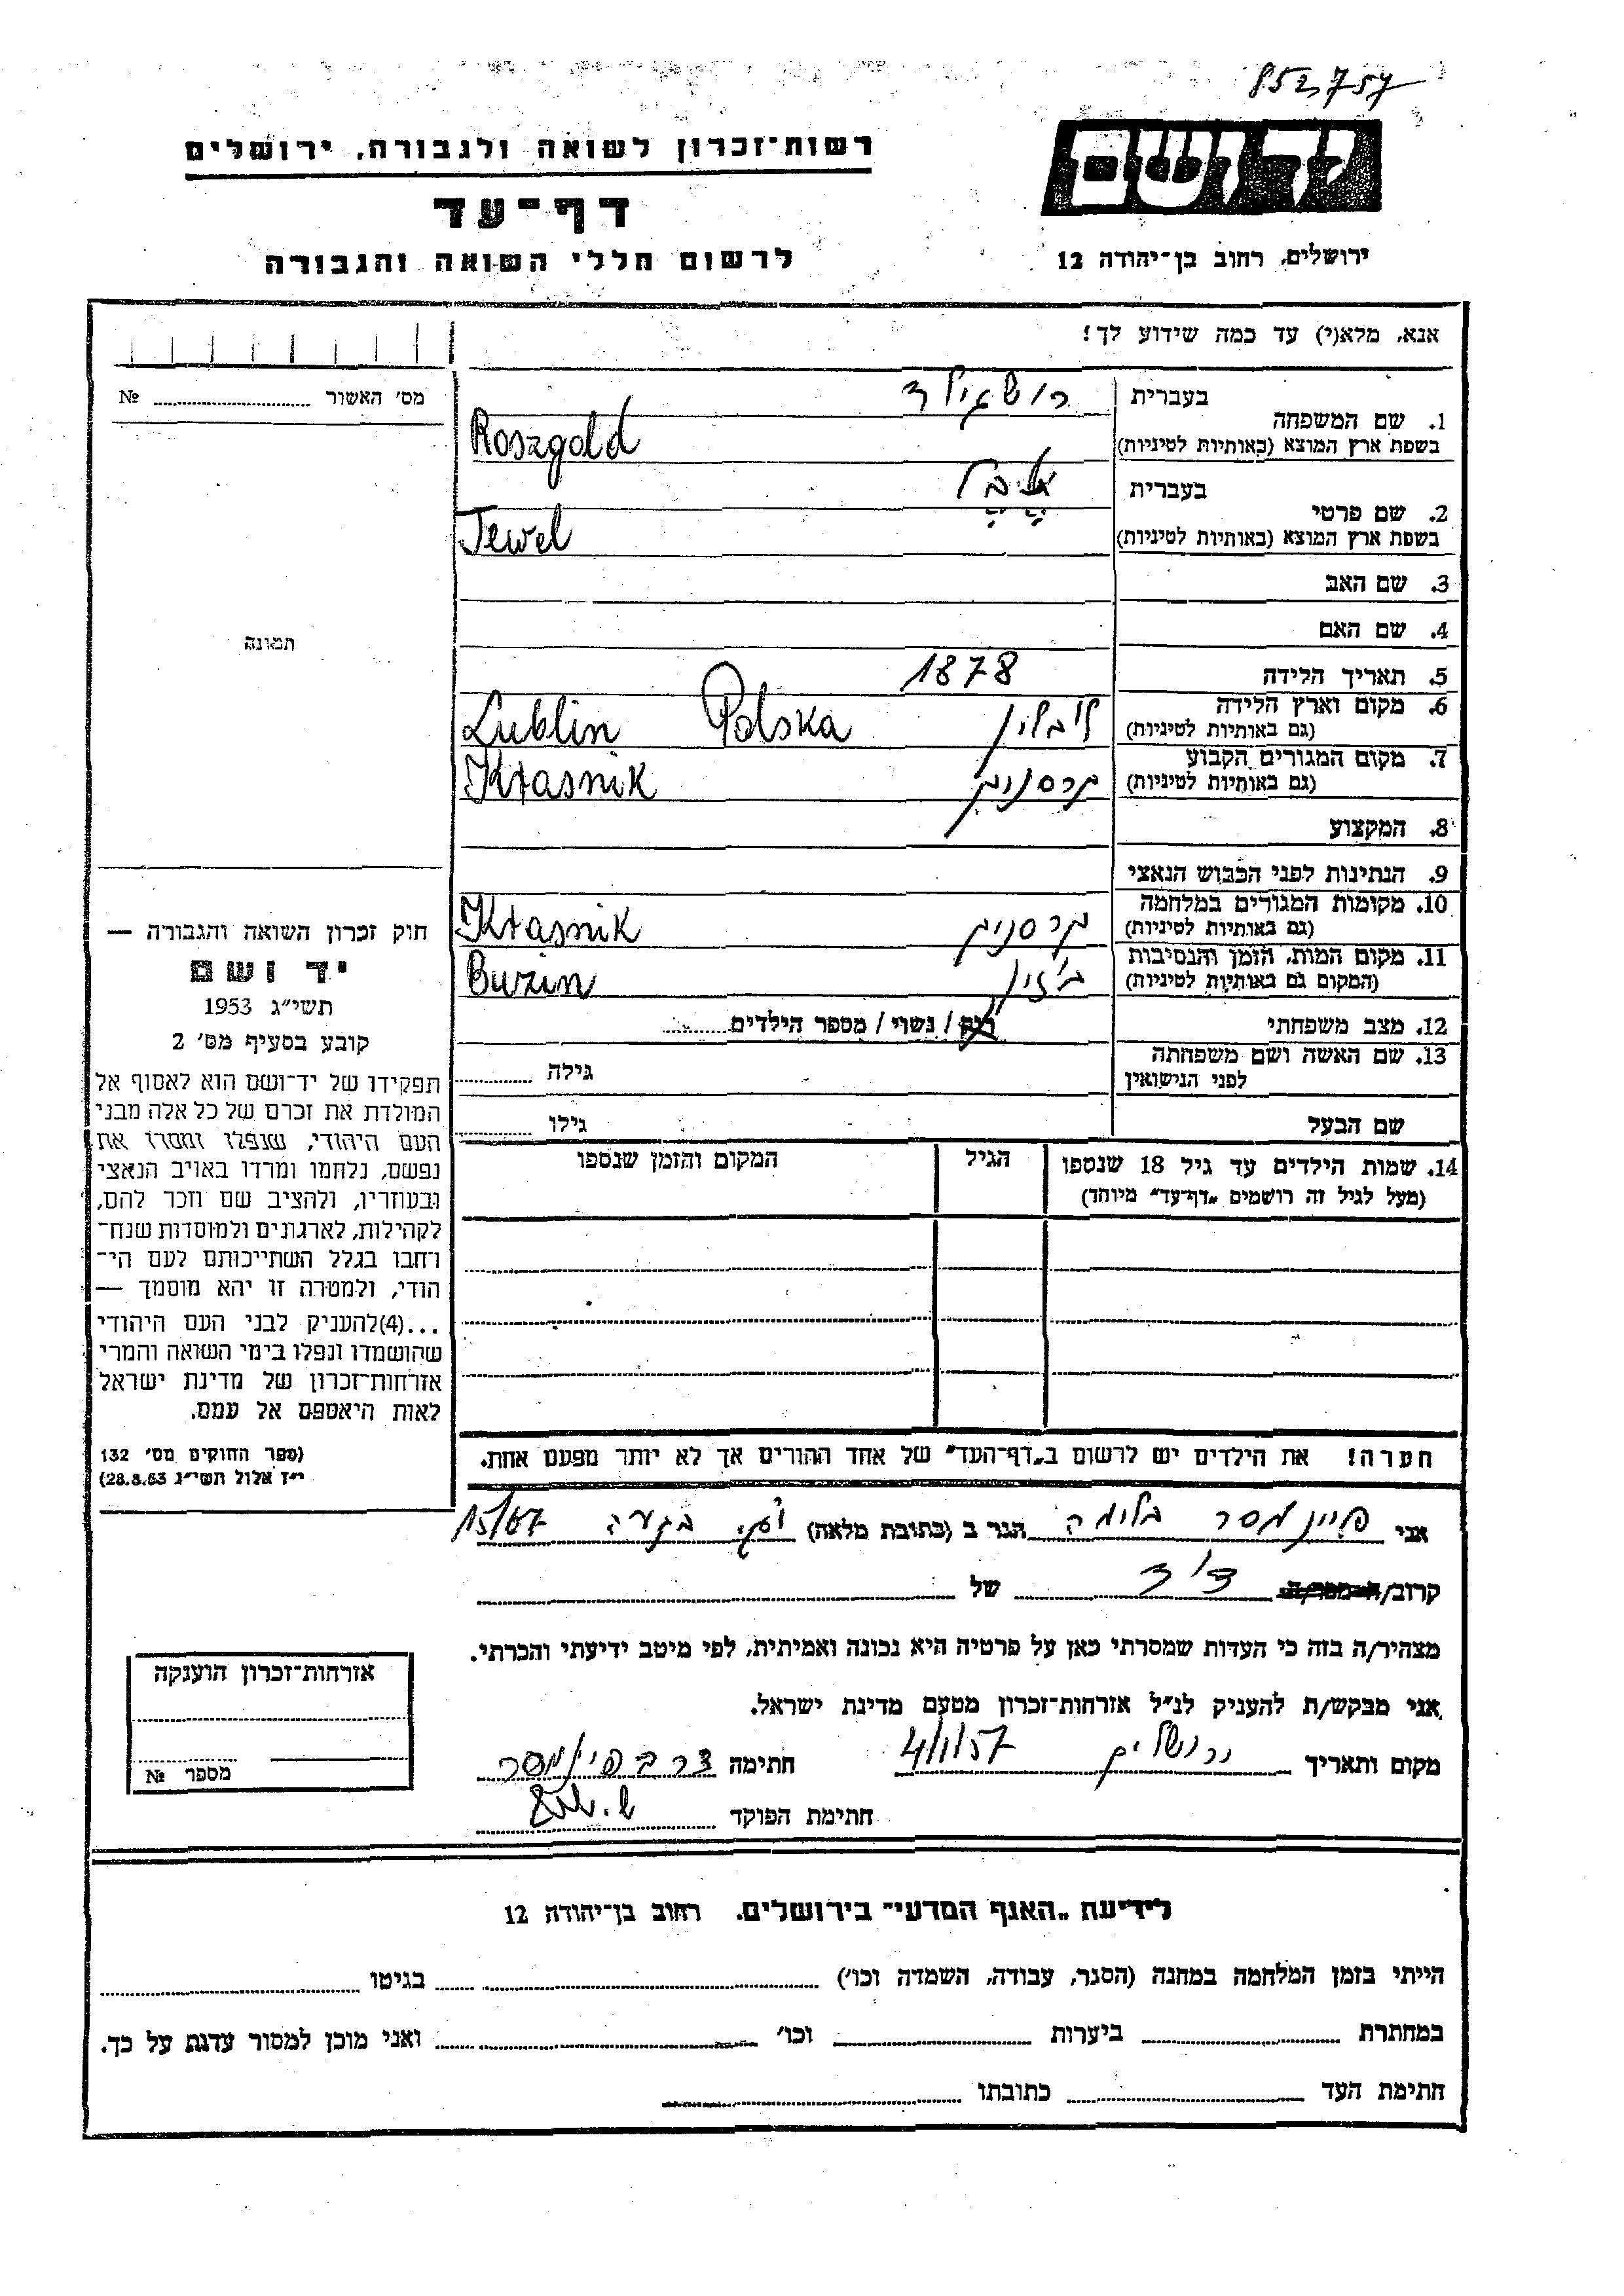 852,757
יד ושם
ירושלים, רחוב בן־יהודה 12
רשות־זכרון לשואה ולגבורה, ירושלים
דף־עד
לרשום חללי השואה והגבורה
אנא, מלא(י) עד כמה שידוע לך!
מס׳ האשור №
1. שם המשפחה
בעברית
בשפת ארץ המוצא (באותיות לטיניות)
Roszgold
2. שם פרטי
בעברית
בשפת ארץ המוצא (באותיות לטיניות)
Jewel
3. שם האב
4. שם האם
5. תאריך הלידה 1878
6. מקום וארץ הלידה לובלין Polska Lublin
(גם באותיות לטיניות)
7. מקום המגורים הקבוע קרסניק Kraśnik
(גם באותיות לטיניות)
8. המקצוע
9. הנתינות לפני הכבוש הנאצי
10. מקומות המגורים במלחמה קרסניק Kraśnik
(גם באותיות לטיניות)
11. מקום המות, הזמן והנסיבות Buzin
(המקום גם באותיות לטיניות)
12. מצב משפחתי רוק / נשוי / מספר הילדים
13. שם האשה ושם משפחתה גילה
לפני הנישואין
שם הבעל גילו
14. שמות הילדים עד גיל 18 שנספו הגיל המקום והזמן שנספו
(מעל לגיל זה רושמים „דף־עד״ מיוחד)
הערה! את הילדים יש לרשום ב„דף־העד״ של אחד ההורים אך לא יותר מפעם אחת.
תמונה
חוק זכרון השואה והגבורה —
יד ושם
תשי״ג 1953
קובע בסעיף מס׳ 2
תפקידו של יד־ושם הוא לאסוף אל
המולדת את זכרם של כל אלה מבני
העם היהודי, שנפלו ומסרו את
נפשם, נלחמו ומרדו באויב הנאצי
ובעוזריו, ולהציב שם וזכר להם,
לקהילות, לארגונים ולמוסדות שנח־
רחבו בגלל השתייכותם לעם הי־
הודי, ולמטרה זו יהא מוסמך —
...(4)להעניק לבני העם היהודי
שהושמדו ונפלו בימי השואה והמרי
אזרחות־זכרון של מדינת ישראל
לאות היאספם אל עמם.
(ספר החוקים מס׳ 132
י״ז אלול תשי״ג 28.8.53)
אני פיינמסר בלימה הגר ב (כתובת מלאה) 15/67
קרוב/ה מכר/ה דוד של
מצהיר/ה בזה כי העדות שמסרתי כאן על פרטיה היא נכונה ואמיתית, לפי מיטב ידיעתי והכרתי.
אני מבקש/ת להעניק לנ״ל אזרחות־זכרון מטעם מדינת ישראל.
מקום ותאריך ירושלים 4/1/57 חתימה
חתימת הפוקד
אזרחות־זכרון הוענקה
מספר №
לידיעת „האגף המדעי״ בירושלים, רחוב בן־יהודה 12
הייתי בזמן המלחמה במחנה (הסגר, עבודה, השמדה וכו׳) בגיטו
במחתרת ביערות וכו׳ ואני מוכן למסור עדות על כך.
חתימת העד כתובתו